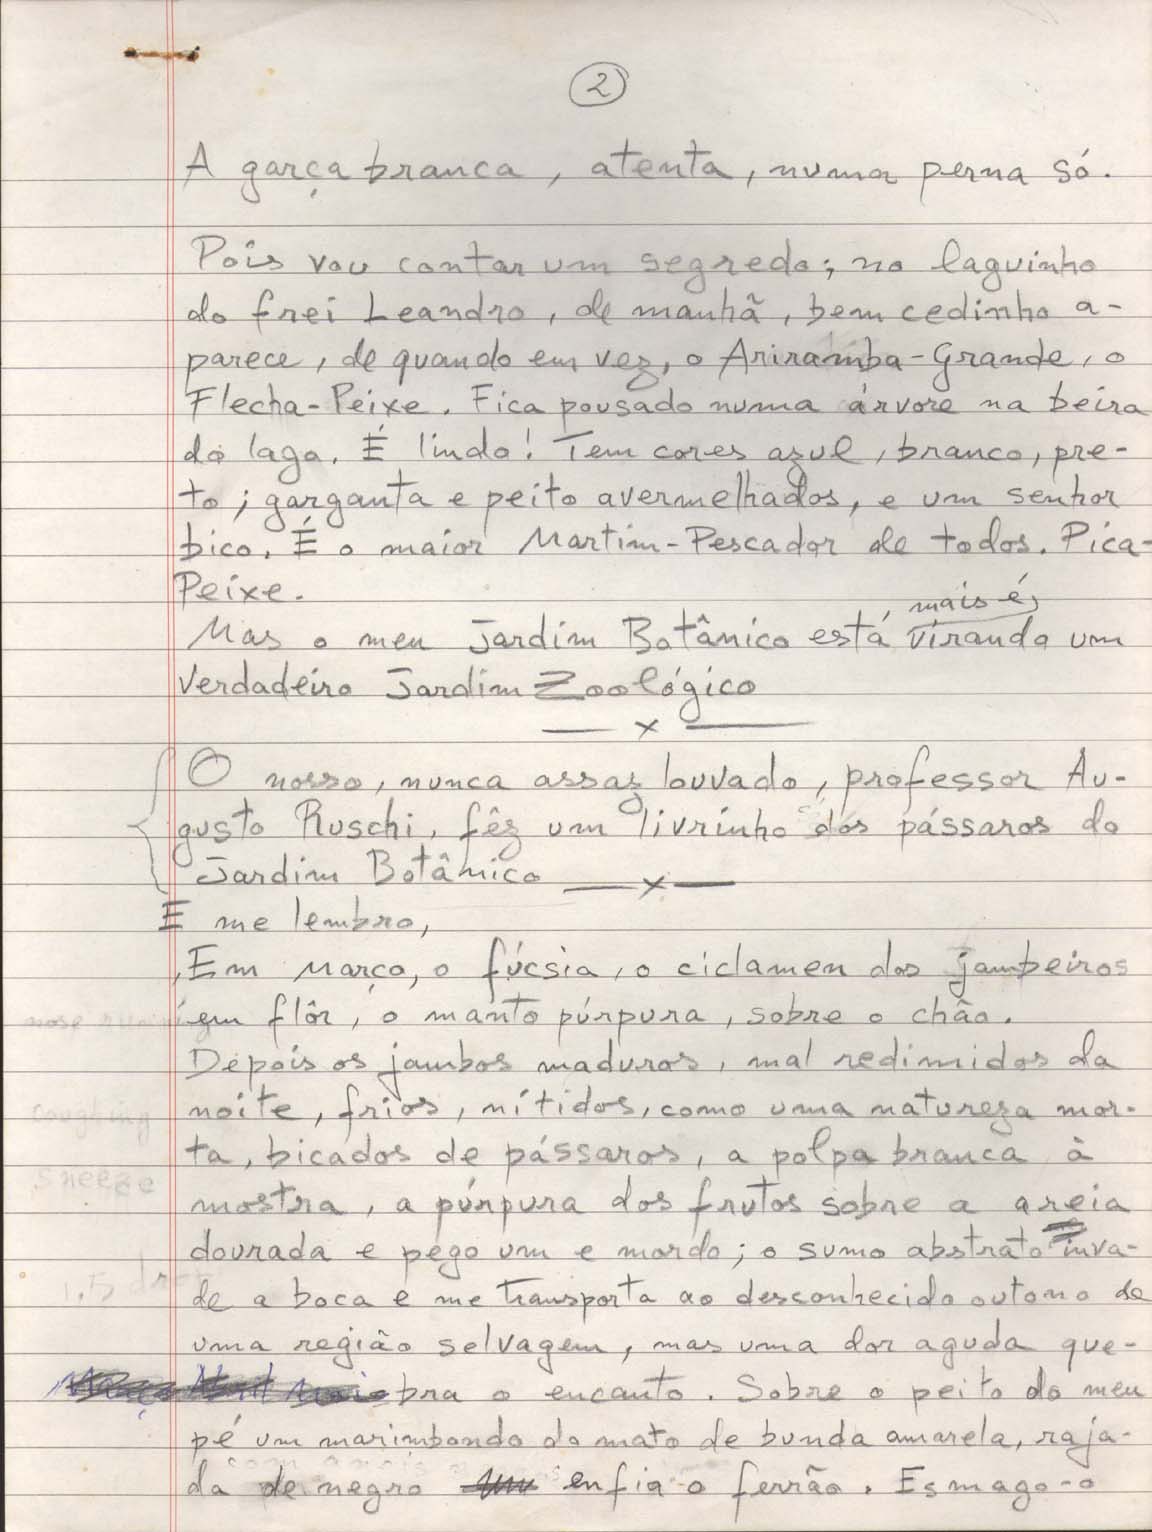 2
A garça branca, atenta, numa perna só.
Pois vou contar um segredo; no laguinho
do frei Leandro, de manhã, bem cedinho a-
parece, de quando em vez, o Ariramba-Grande, o
Flecha-Peixe. Fica pousado numa árvore na beira
do lago. É lindo! Tem cores azul, branco, pre-
to; garganta e peito avermelhados, e um senhor
bico. É o maior Martim-Pescador de todos. Pica-
Peixe.
, mais é,
Mas o meu Jardim Botânico está virando um
verdadeiro Jardim Zoológico
— x —
O nosso, nunca assaz louvado, professor Au-
gusto Ruschi, fêz um livrinho dos pássaros do
Jardim Botânico — x —
E me lembro,
, Em Março, o fúcsia, o ciclamen dos jambeiros
em flôr, o manto púrpura, sobre o chão.
Depois os jambos maduros, mal redimidos da
noite, frios, nítidos, como uma natureza mor-
coughing
ta, bicados de pássaros, a polpa branca à
sneeze
mostra, a púrpura dos frutos sobre a areia
dourada e pego um e mordo; o sumo abstrato inva-
de a boca e me transporta ao desconhecido outono de
uma região selvagem, mas uma dor aguda que-
bra o encanto. Sobre o peito do meu
pé um marimbondo do mato de bunda amarela, raja-
da de negro enfia-o ferrão. Esmago-o